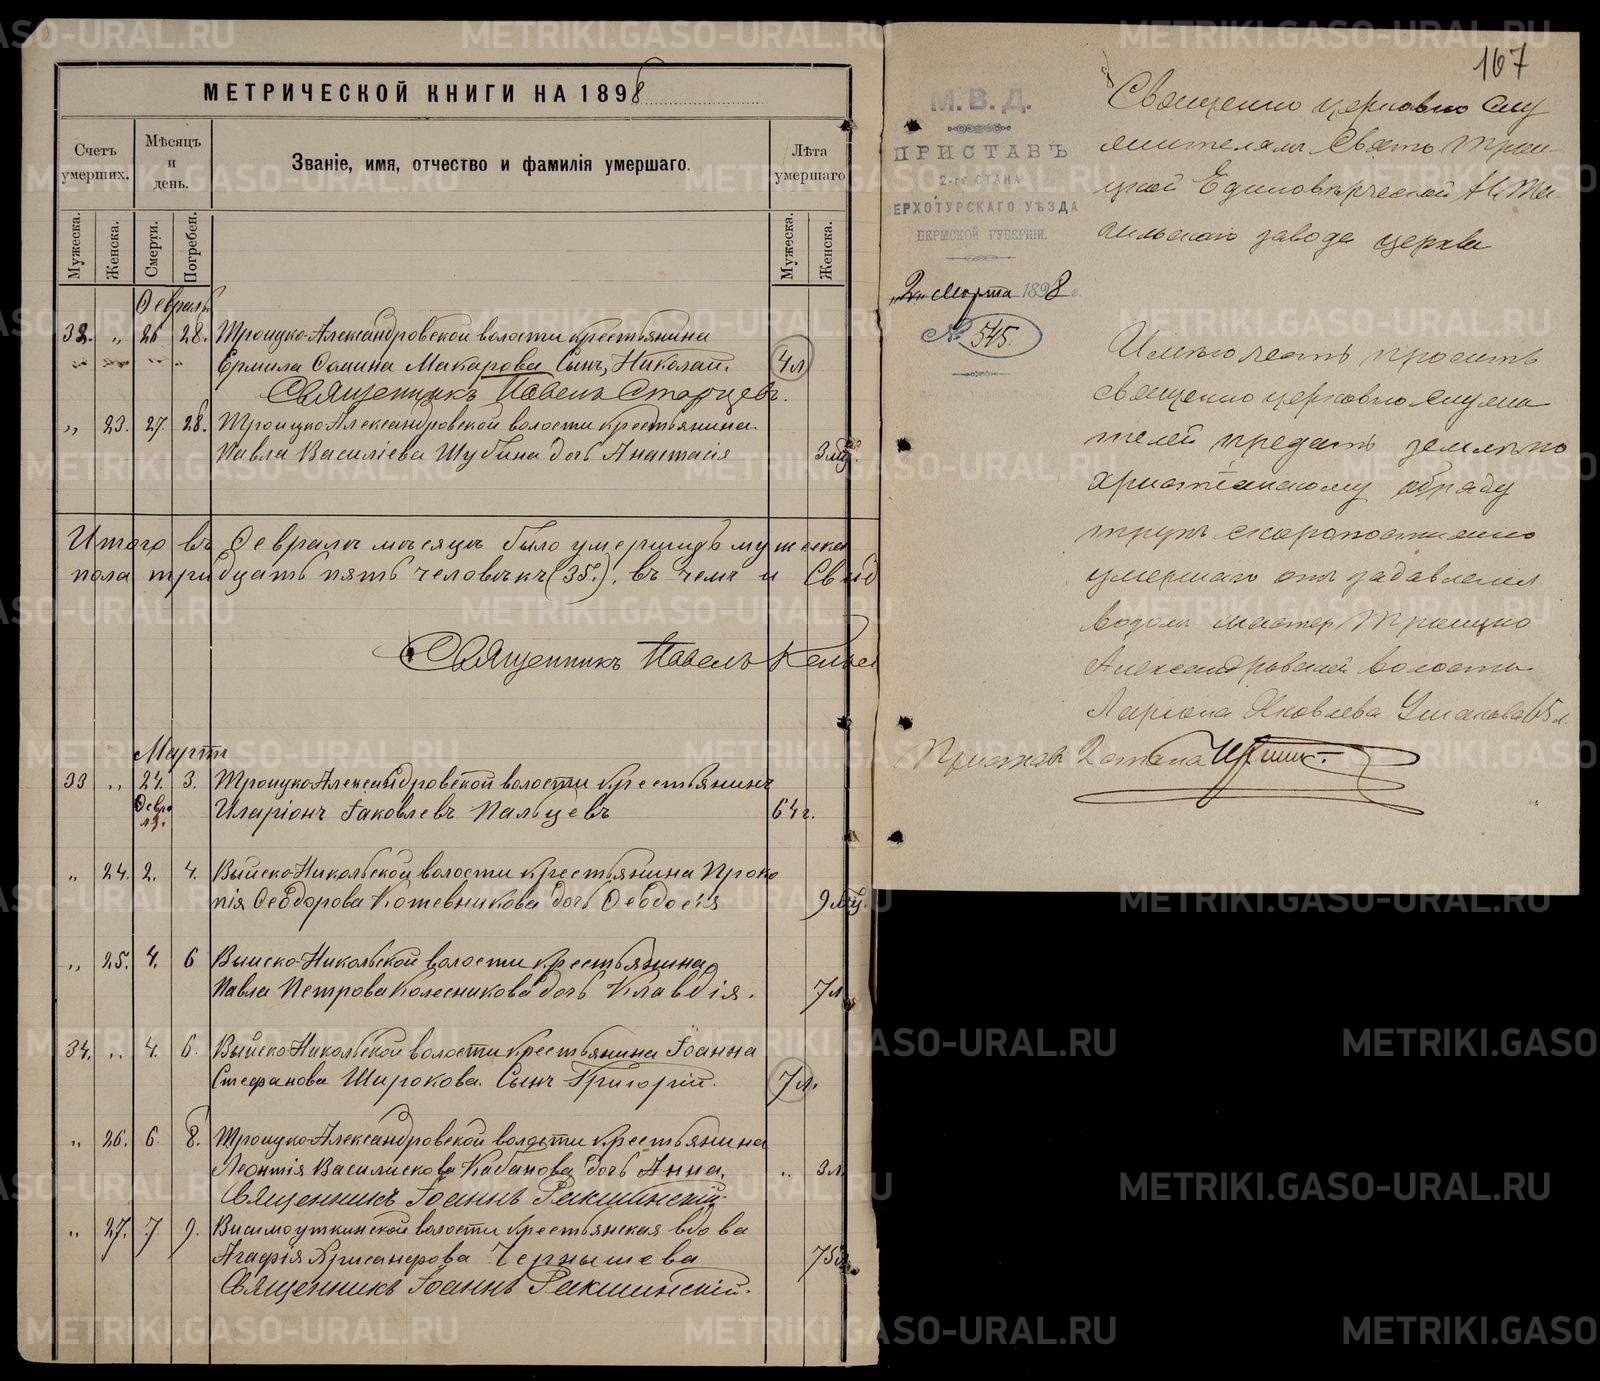 МЕТРИЧЕСКОЙ КНИГИ НА 1898
Счетъ умершихъ.
Мѣсяцъ и день.
Званіе, имя, отчество и фамилія умершаго.
Лѣта умершаго
Мужеска.
Женска.
Смерти.
Погребен.
Мужеска.
Женска.
Февраль
32. „ 26 28. Троицко-Александровской волости крестьянина
Ермила Макарова сынъ, Николай. 4 л
Священникъ Павелъ Старцевъ.
„ 23. 27. 28. Троицко-Александровской волости крестьянина
Павла Василіева Шубина дочь Анастасія 3 мѣс.
Итого въ Февралѣ мѣсяцѣ было умершихъ мужеска
пола тридцать пять человѣкъ (35.). въ чемъ и Свид
Священникъ Павелъ
Мартъ
33 „ 24. 3. Троицко-Александровской волости крестьянинъ
Февраля. Иларіонъ Іаковлевъ Пальцевъ 64 г.
„ 24. 2. 4. Выйско-Никольской волости крестьянина Проко
пія Ѳеодорова Кожевникова дочь Ѳеодосія 9 мѣс.
„ 25. 4. 6 Выйско-Никольской волости крестьянина
Павла Петрова Колесникова дочь Клавдія. 7 л
34. „ 4. 6. Выйско-Никольской волости крестьянина Іоанна
Стефанова Широкова. Сынъ Григорій. 7 л.
„ 26. 6. 8. Троицко-Александровской волости крестьянина
Леонтія Василискова Кабанова дочь Анна. „ 3 л
Священникъ Іоаннъ
„ 27. 7. 9. Висимоуткинской волости крестьянская вдова
Агафія Чернышева 75 л
Священникъ Іоаннъ
167
М. В. Д.
ПРИСТАВЪ
2-го СТАНА
ЕРХОТУРСКАГО УѢЗДА
ПЕРМСКОЙ ГУБЕРНІИ.
„2„ Марта 1898 г.
№ 545.
Священно церковно слу
жителямъ Свято Трои
цкой Единовѣрческой Н Та
гильскаго завода церкви
Имѣю честь просить
священно церковно служи
телей предать землѣ по
христіанскому обряду
трупъ скоропостижно
умершаго отъ задавленія
водою мастер Троицко
Александровской волости
Ларіона Яковлева 65 л.
Приставъ 2 стана
METRIKI.GASO-URAL.RU